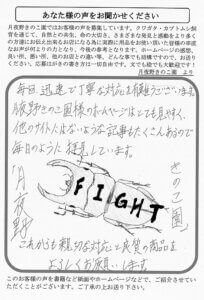 あなた様の声をお聞かせください
月夜野きのこ園ではお客様の声を募集しています。クワガタ・カブトムシ飼
育を通じて、自然との共生、命の大切さ、さまざまな発見と感動をより多く
の方達にお伝え出来るお店になる為に実際に用品をお使い頂いた皆様の率直
なお声が何よりの力となり、今後の参考となります。ホームページの感想、
良い所、悪い所、他のお店との違い等、どんな事でも結構ですので、お送り
ください。応募はがきの書き方は一切自由です。文でも絵でも大歓迎です!
月夜野きのこ園 より
毎回迅速で丁寧な対応に有難うございます。
月夜野きのこ園様のホームページはとても見やすく、
他のサイトにはないような記事もたくさんあるので
毎日のように拝見しています。
FIGHT
月夜野
きのこ園
これからも親切な対応と良質の商品を
よろしくお願いします。
このお客様の声を書籍など紙面やホームページなどで、ご紹介させてい
ただくことがございます。ご了承の上お送り下さい。